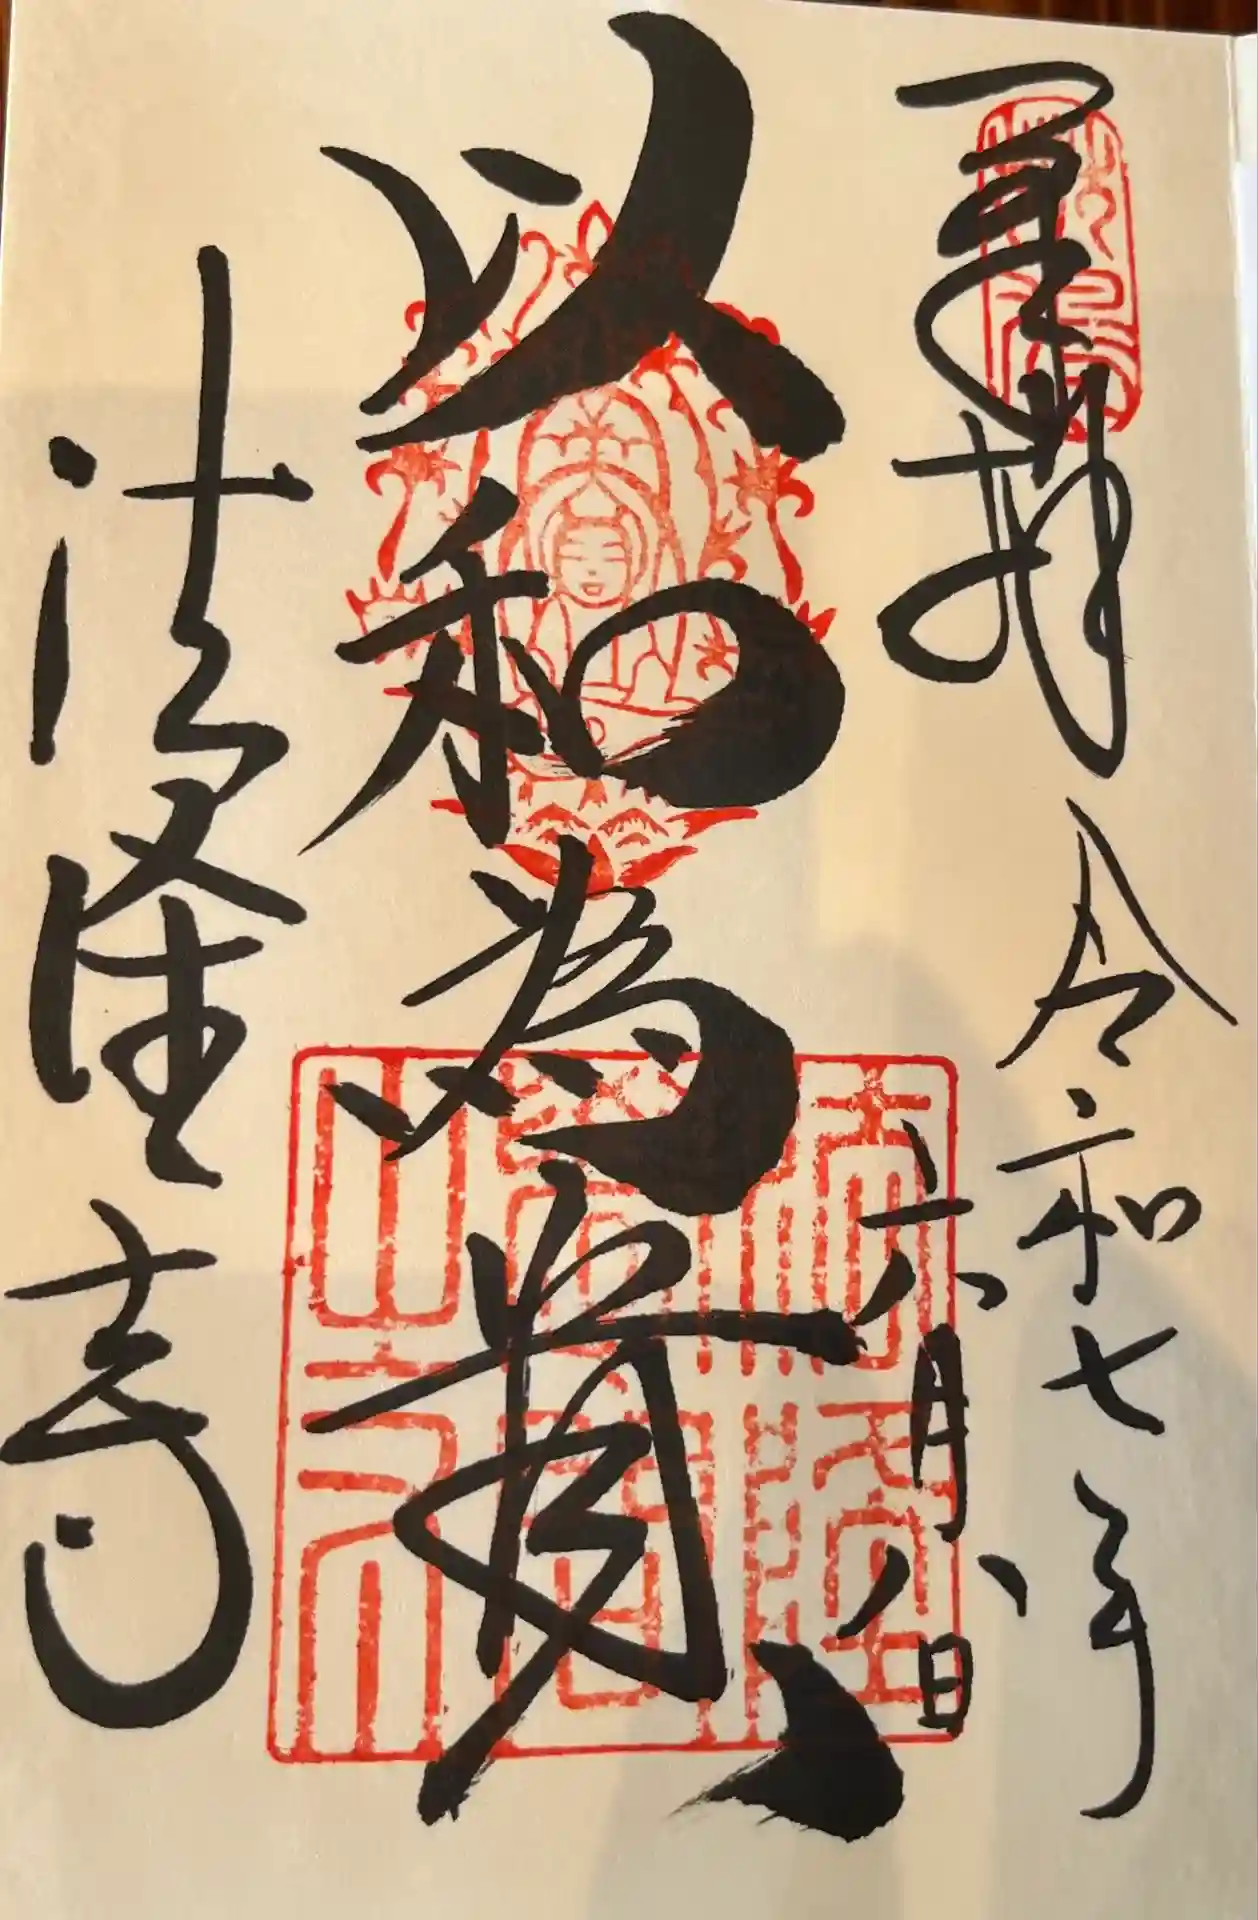 重拝
令和七年
六月八日
以和為貴
法隆寺